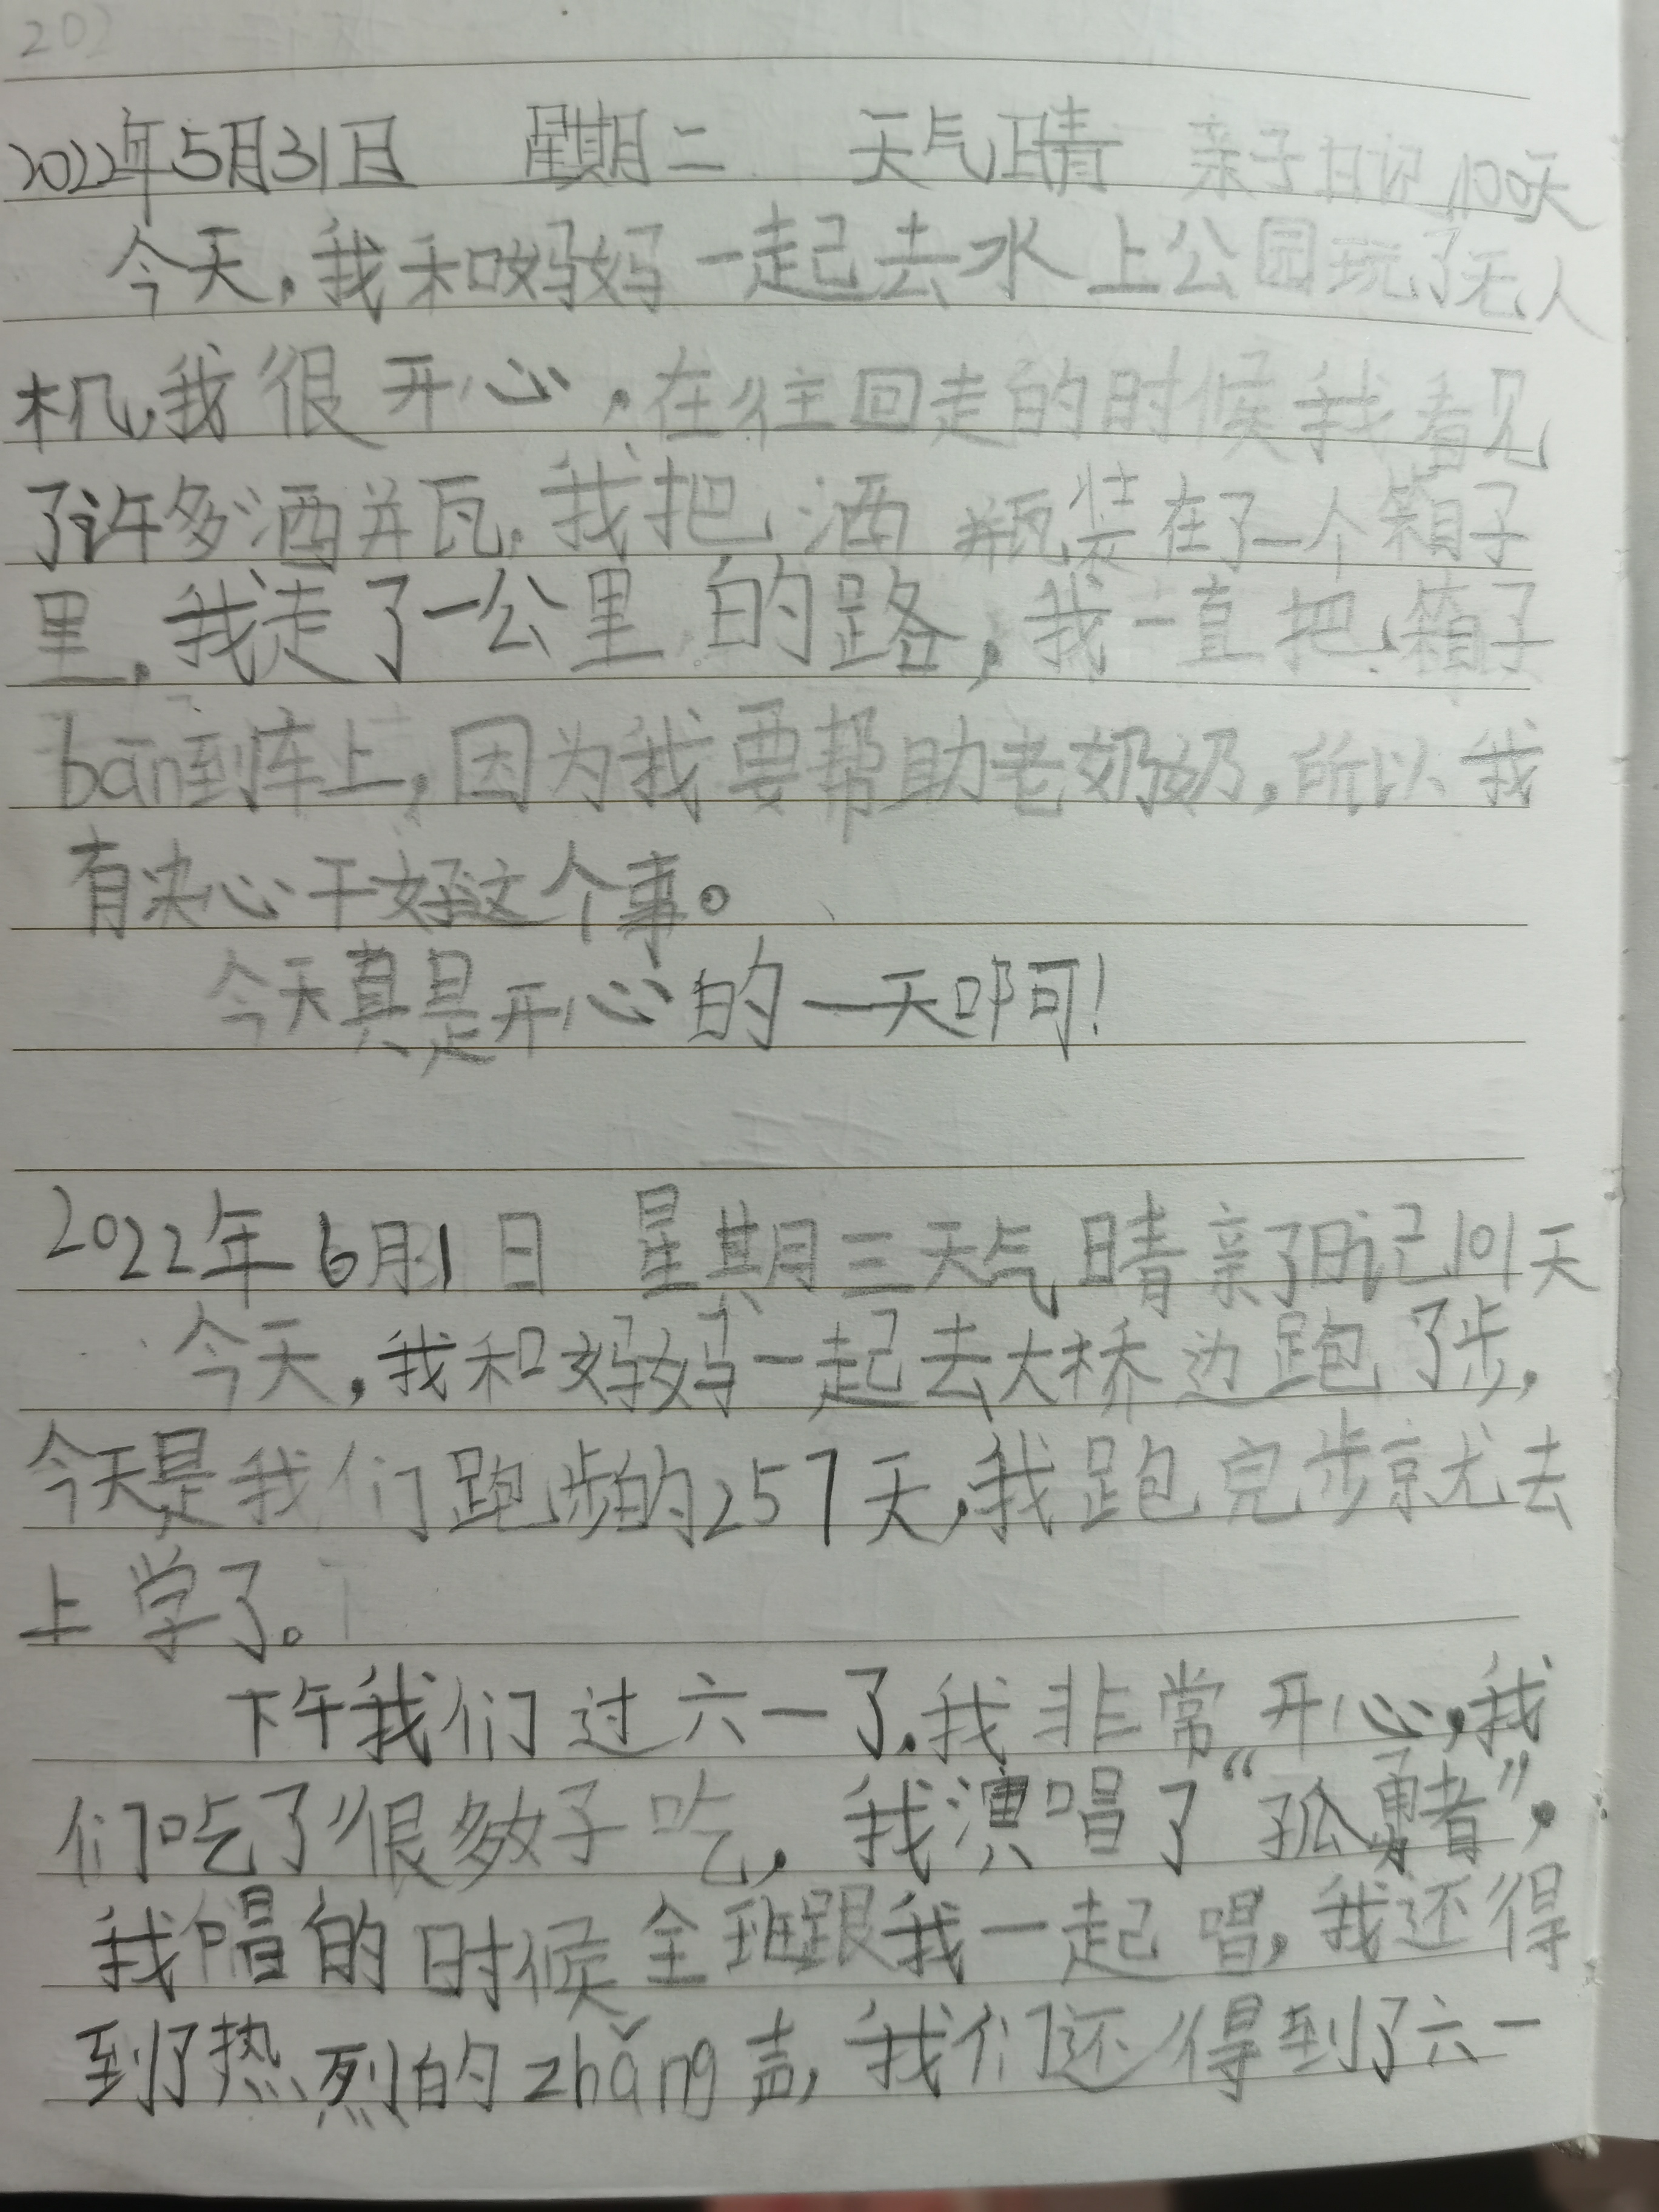 202
2022年5月31日 星期二 天气晴 亲子日记100天
今天,我和妈妈一起去水上公园玩了无人
机,我很开心,在往回走的时候我看见
了许多酒瓶,我把酒瓶装在了一个箱子
里,我走了一公里的路,我一直把箱子
bān到车上,因为我要帮助老奶奶,所以我
有决心干好这个事。
今天真是开心的一天啊!
2022年6月1日 星期三天气晴亲子日记101天
今天,我和妈妈一起去大桥边跑了步,
今天是我们跑步的257天,我跑完步就去
上学了。
下午我们过六一了,我非常开心,我
们吃了很多好子吃,我演唱了“孤勇者”,
我唱的时候全班跟我一起唱,我还得
到了热烈的zhǎng声,我们还得到了六一